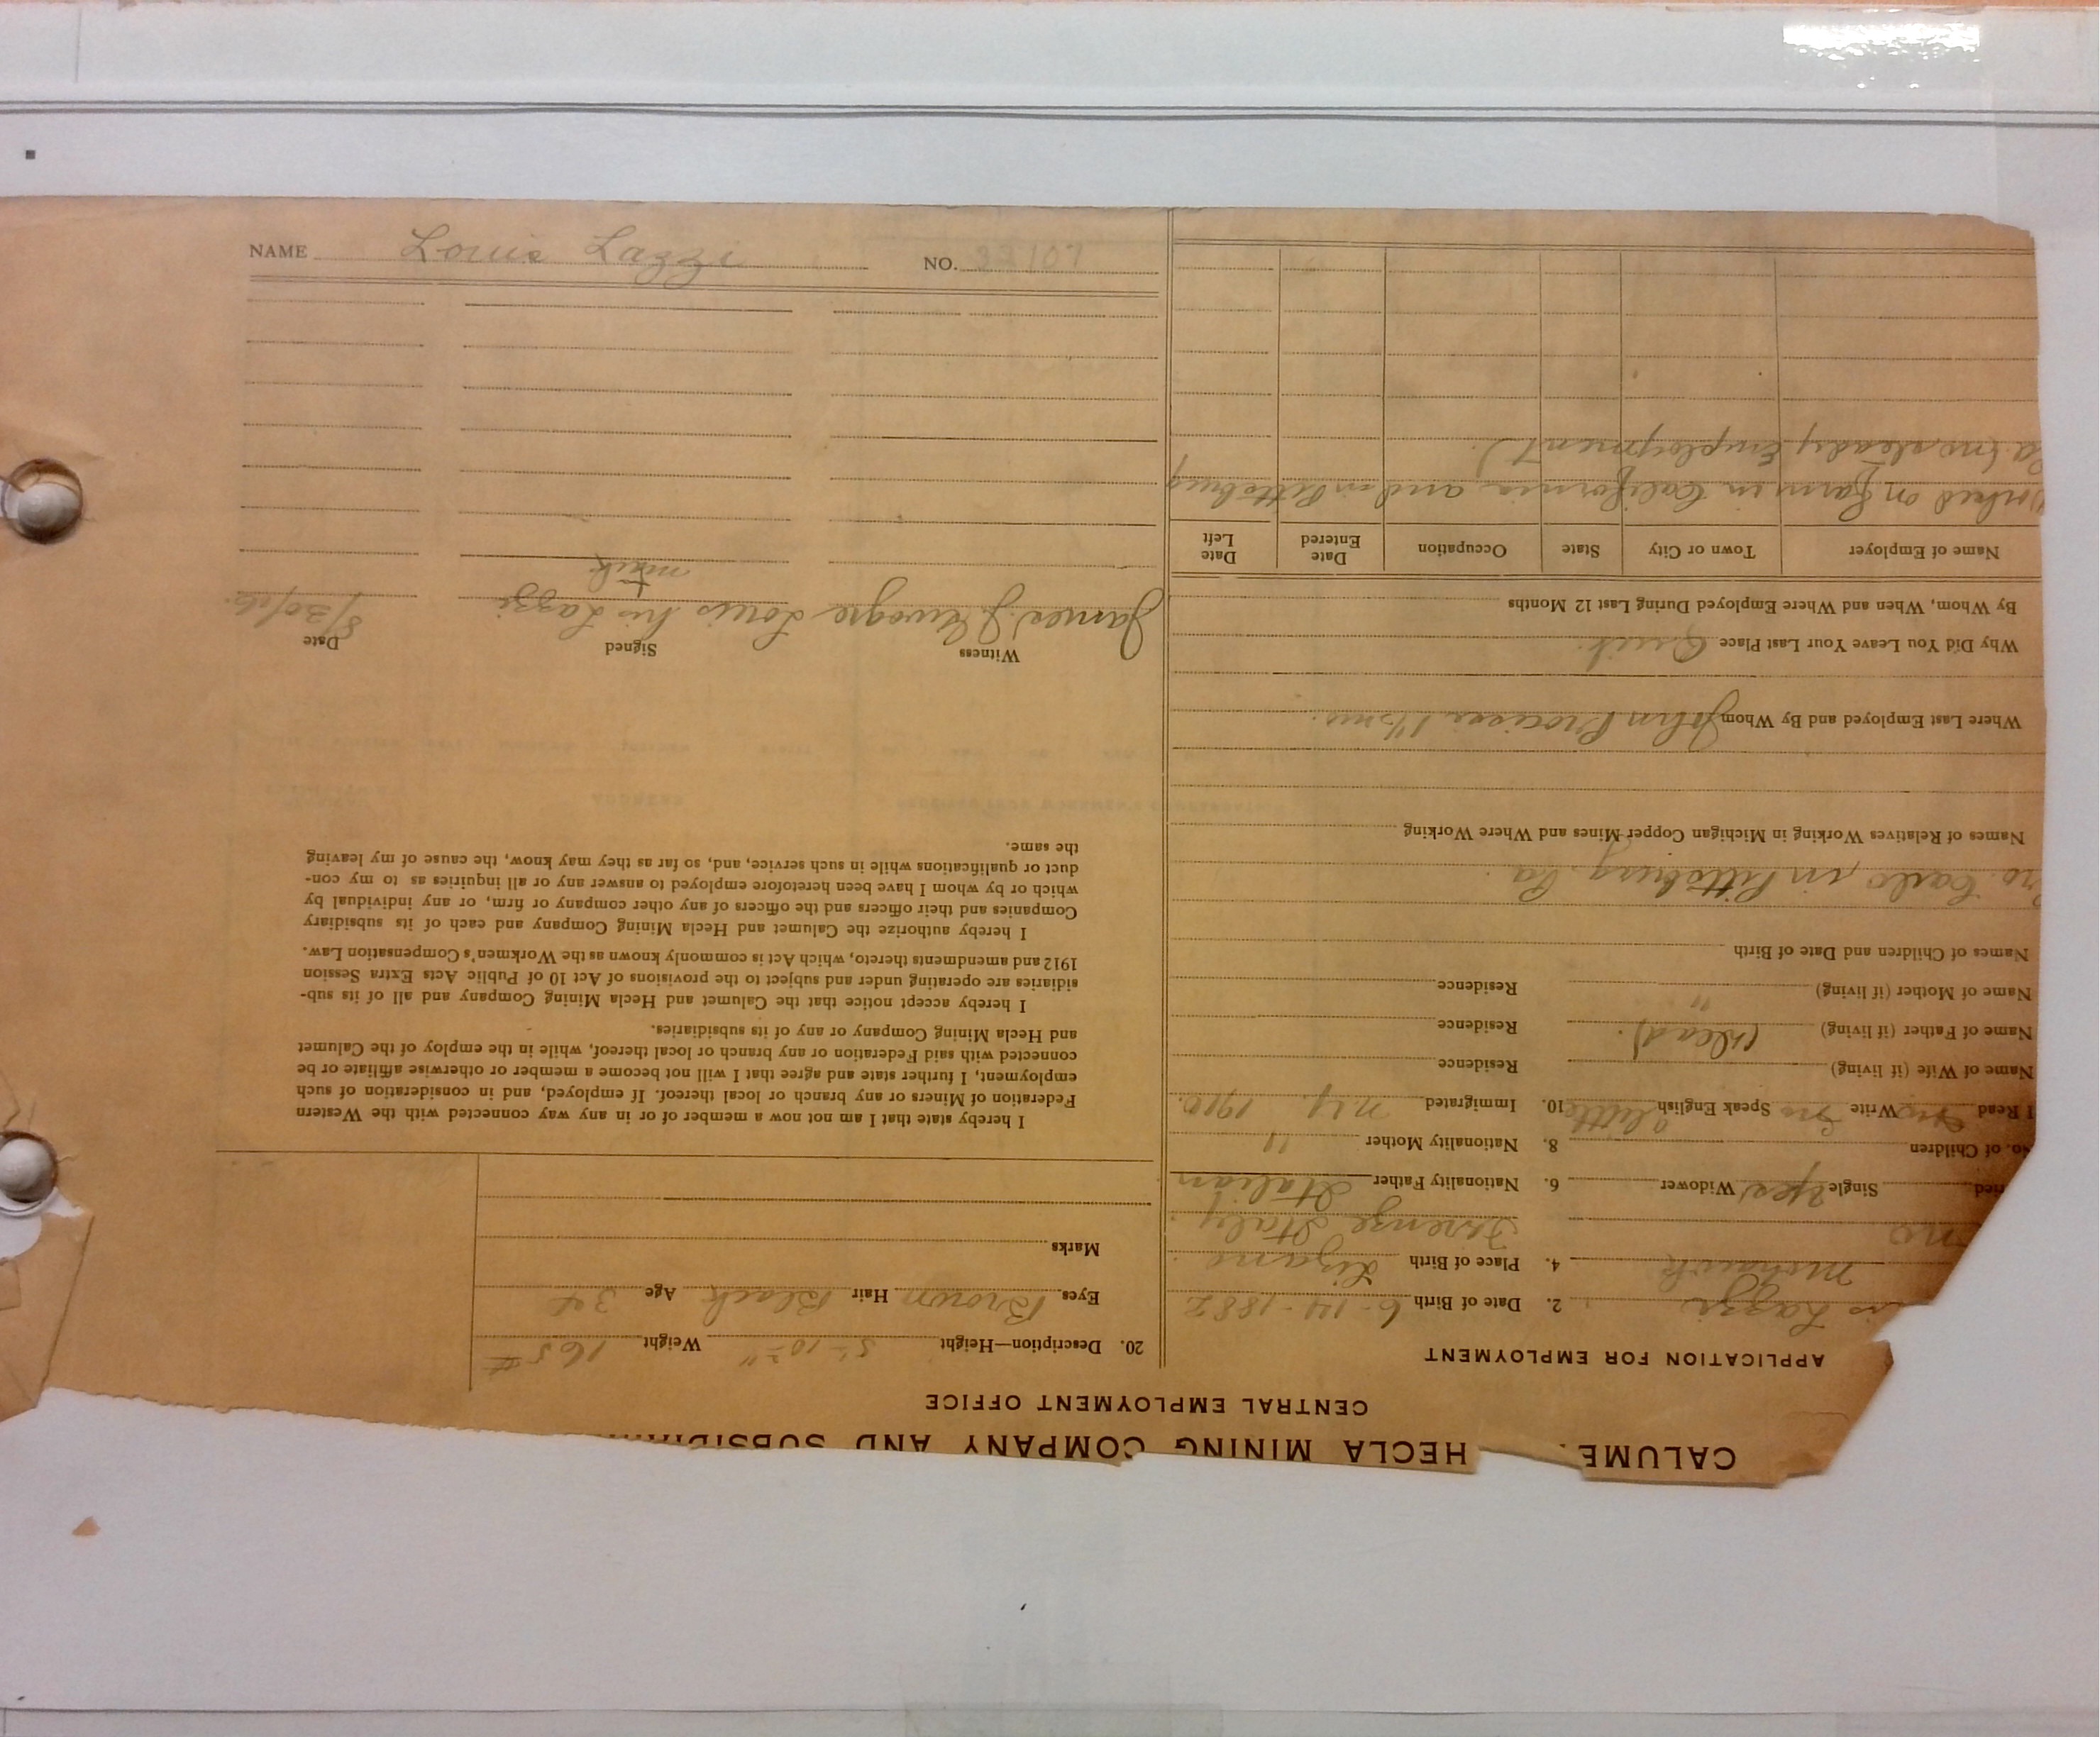 NAME Louis Lazzi NO. 32107
CALUME HECLA MINING COMPANY AND SUBSIDIARI
CENTRAL EMPLOYMENT OFFICE
APPLICATION FOR EMPLOYMENT
is Lazzi 2. Date of Birth 6-14-1882
Mohawk 4. Place of Birth
no Firenze Italy
ried Single yes Widower 6. Nationality Father Italian
No. of Children 8. Nationality Mother "
I Read no Write no Speak English little 10. Immigrated N.Y. 1910.
Name of Wife (if living) Residence
Name of Father (if living) (dead). Residence
Name of Mother (if living) " Residence
Names of Children and Date of Birth
Bro. Carlo, in Pittsburg Pa.
Names of Relatives Working in Michigan Copper Mines and Where Working
Where Last Employed and By Whom John 1½ mo.
Why Did You Leave Your Last Place Quit.
By Whom, When and Where Employed During Last 12 Months
Name of Employer Town or City State Occupation Date Entered Date Left
Worked on Farm in California and in Pittsburg
Pa. (no steady employment).
20. Description—Height 5'-10" Weight 165#
Eyes Brown Hair Black Age 34
Marks
I hereby state that I am not now a member of or in any way connected with the Western
Federation of Miners or any branch or local thereof. If employed, and in consideration of such
employment, I further state and agree that I will not become a member or otherwise affiliate or be
connected with said Federation or any branch or local thereof, while in the employ of the Calumet
and Hecla Mining Company or any of its subsidiaries.
I hereby accept notice that the Calumet and Hecla Mining Company and all of its sub-
sidiaries are operating under and subject to the provisions of Act 10 of Public Acts Extra Session
1912 and amendments thereto, which Act is commonly known as the Workmen's Compensation Law.
I hereby authorize the Calumet and Hecla Mining Company and each of its subsidiary
Companies and their officers and the officers of any other company or firm, or any individual by
which or by whom I have been heretofore employed to answer any or all inquiries as to my con-
duct or qualifications while in such service, and, so far as they may know, the cause of my leaving
the same.
Witness Signed Date
James J. Louis his Lazzi 8/30/16.
+
mark